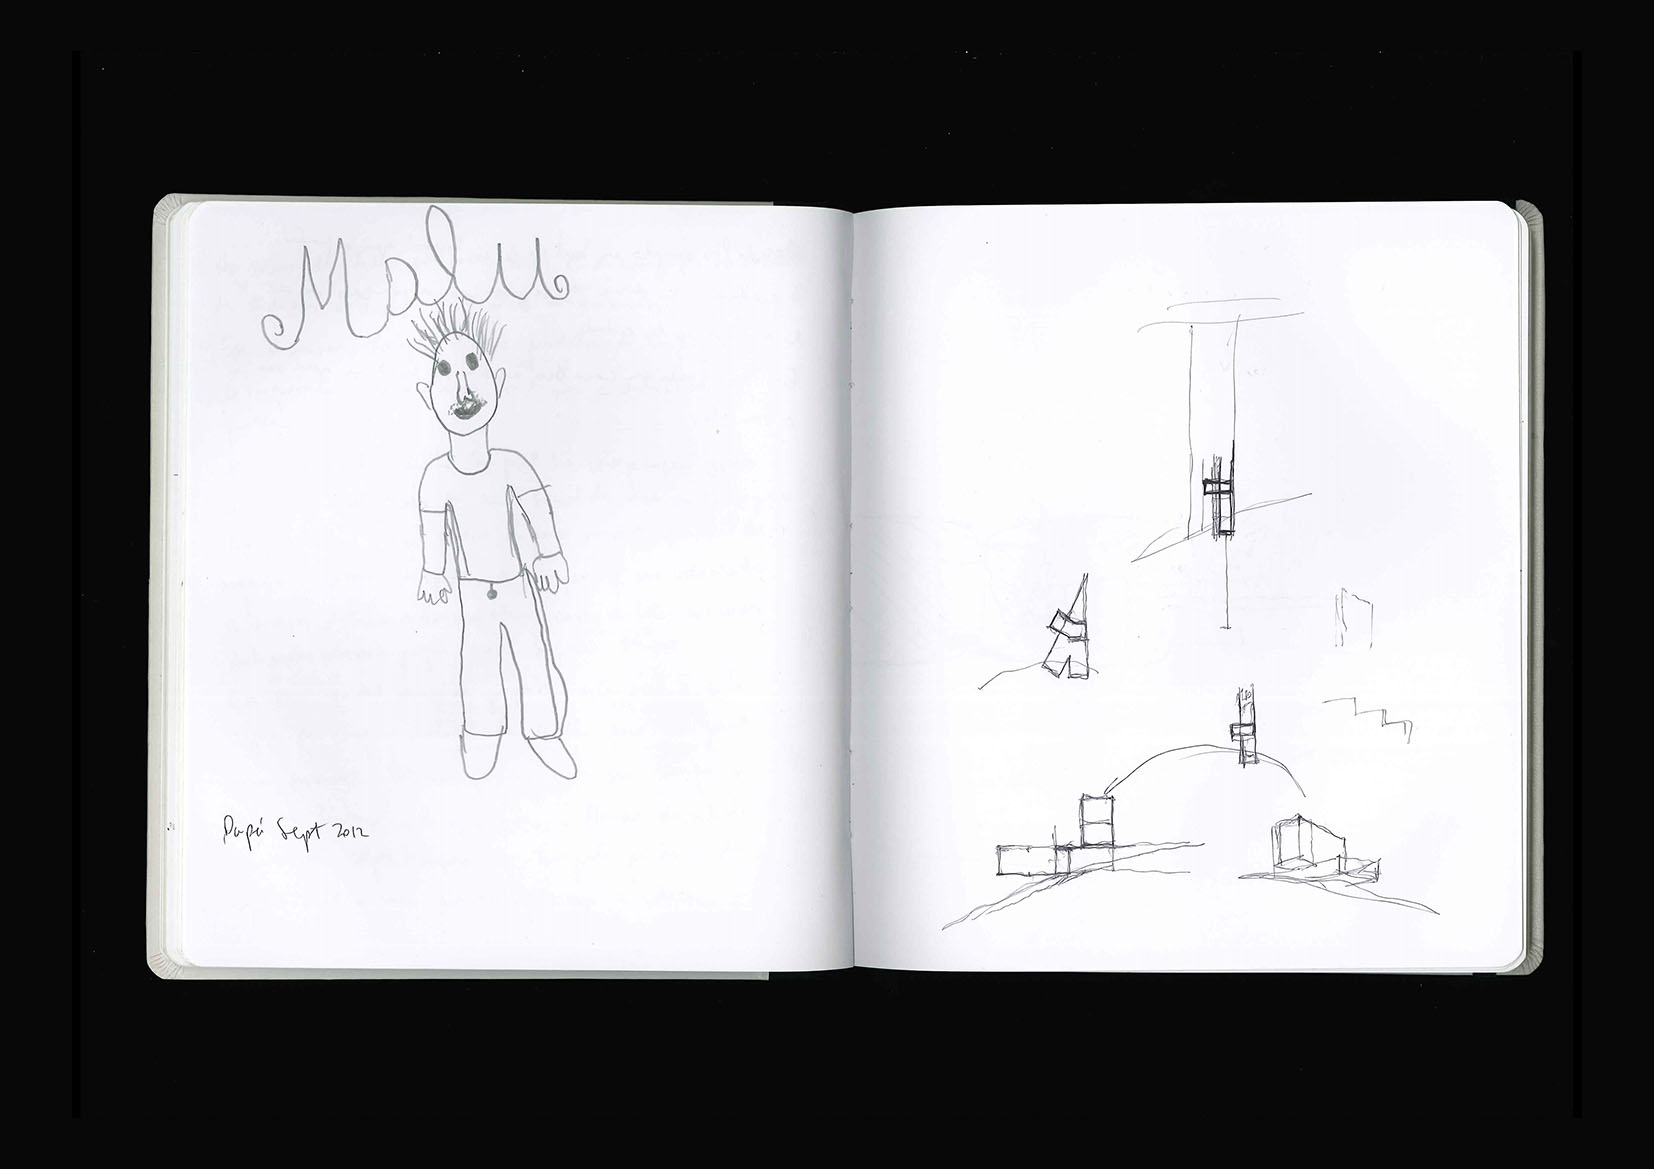 Malu
Papá Sept 2012